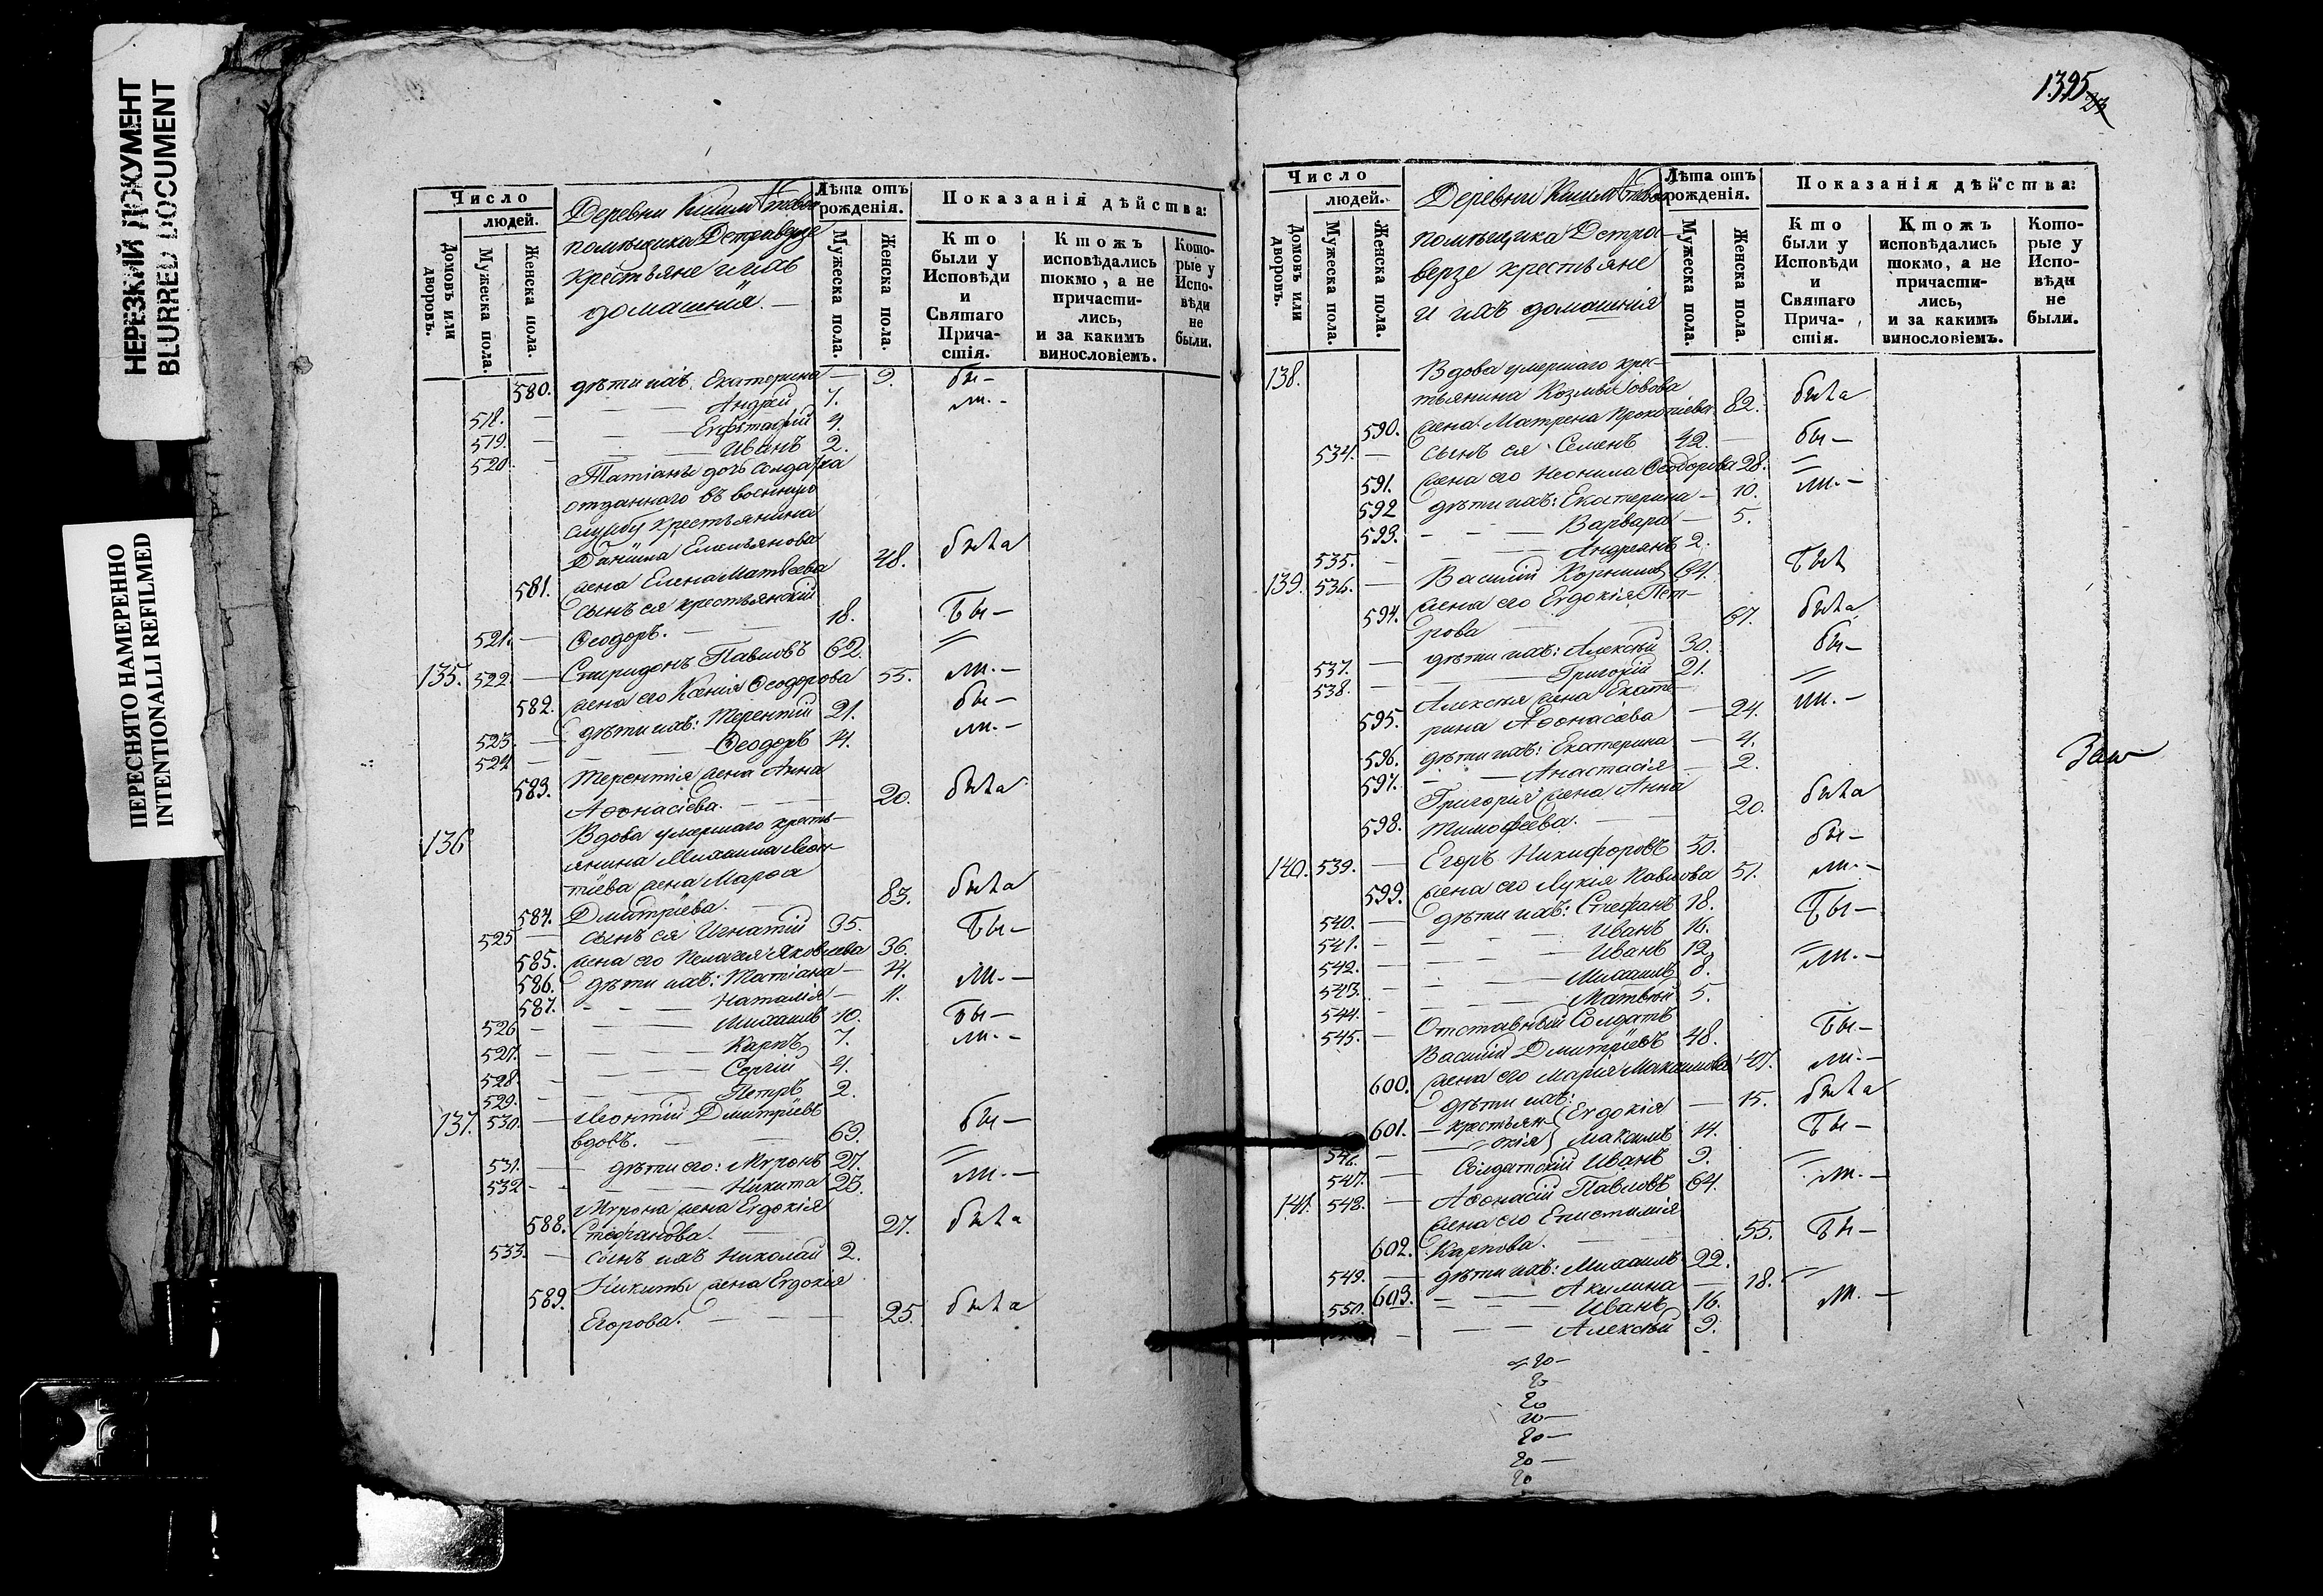 НЕРЕЗКИЙ ДОКУМЕНТ
BLURRED DOCUMENT
ПЕРЕСНЯТО НАМЕРЕННО
INTENTIONALLI REFILMED
Число
людей.
Домовъ или дворовъ.
Мужеска пола.
Женска пола.
Деревни
помѣщика
крестьяне и ихъ
домашнія. —
Лѣта отъ рожденія.
Мужеска пола.
Женска пола.
Показанія дѣйства:
Кто были у Исповѣди и Святаго Причастія.
Ктожъ исповѣдались токмо, а не причастились, и за какимъ винословіемъ.
Которые у Исповѣди не были.
580. дѣти ихъ: Екатерина — 9. бы —
518. — Андрей 7. ли. —
519. — Евстафій 4.
520. — Иванъ 2.
отданнаго въ военную
службу крестьянина
Даніила Емельянова
581. жена Елена Матвѣева 48. была
сынъ ея крестьянскій
521. — Ѳеодоръ. — 18. бы —
135. 522. — Спиридонъ Павловъ 62. //
582. жена его Ксенія Ѳеодорова 55. ли. —
523. — дѣти ихъ: Терентій 21. бы —
524. — Ѳеодоръ 14. ли. —
583. Терентія жена Анна
Аѳонасіева. — 20. была
136 Вдова умершаго кресть-
янина Михаила Леон-
тіева жена Марѳа
584. Дмитріева. — 83. была
525 — сынъ ея Игнатій 35. бы —
585. жена его Пелагея Яковлева 36.
586. дѣти ихъ: Татіана — 14. ли. —
587. — Наталія — 11.
526 — Михаилъ 10. бы —
527. — Карпъ 7. ли. —
528. — Сергій 4.
529. — Петръ 2.
137. 530. — Леонтій Дмитріевъ
вдовъ. — 69. бы —
531. — дѣти его: Мѵронъ 27. //
532 — Никита 25. ли. —
Мѵрона жена Евдокія
588. Стефанова. — 27. была
533. — сынъ ихъ Николай 2.
589. Никиты жена Евдокія
Егорова. — 25. была
1395
Число
людей.
Домовъ или дворовъ.
Мужеска пола.
Женска пола.
Деревни
помѣщика
крестьяне
и ихъ домашнія
Лѣта отъ рожденія.
Мужеска пола.
Женска пола.
Показанія дѣйства:
Кто были у Исповѣди и Святаго Причастія.
Ктожъ исповѣдались токмо, а не причастились, и за какимъ винословіемъ.
Которые у Исповѣди не были.
138. Вдова умершаго кре-
стьянина Козмы Іовова
590. жена Матрена Прокопіева 82. была
534. — сынъ ея Семенъ 42. бы —
591. жена его Неонила Ѳеодорова 28. //
592 дѣти ихъ: Екатерина — 10. ли. —
593. — Варвара — 5.
535. — Андреянъ 2.
139. 536. — Василій Корнилов 64. былъ
594. жена его Евдокія Пет-
рова — 61. была
537. — дѣти ихъ: Алексѣй 30. бы —
538. — Григорій 21. //
Алексѣя жена Екате-
595. рина Аѳонасіева — 24. ли. —
596. дѣти ихъ: Екатерина — 4.
597. — Анастасія — 2.
Григорія жена Анна
598. Тимофеева. — 20. была
140. 539. — Егоръ Никифоровъ 50. бы —
599. жена его Лукія Павлова 51. ли. —
540. — дѣти ихъ: Стефанъ 18. бы —
541. — Иванъ 16.
542. — Иванъ 12. //
543. — Михаилъ 8. ли. —
544. — Матвѣй 5.
545. — Отставный Солдатъ
Василій Дмитріевъ 48. бы —
600. жена его Марія Максимова 47. ли. —
дѣти ихъ:
601. — крестьян- Евдокія — 15. была
546. — скія Максимъ 14. бы —
547. — Солдатскій Иванъ 9. //
141. 548. — Аѳонасій Павловъ 64. ли. —
жена его Епистимія
602. Карпова. — 55. бы —
549. — дѣти ихъ: Михаилъ 22.
603. — Акилина — 18. //
550. — Иванъ 16. ли. —
— Алексѣй 9.